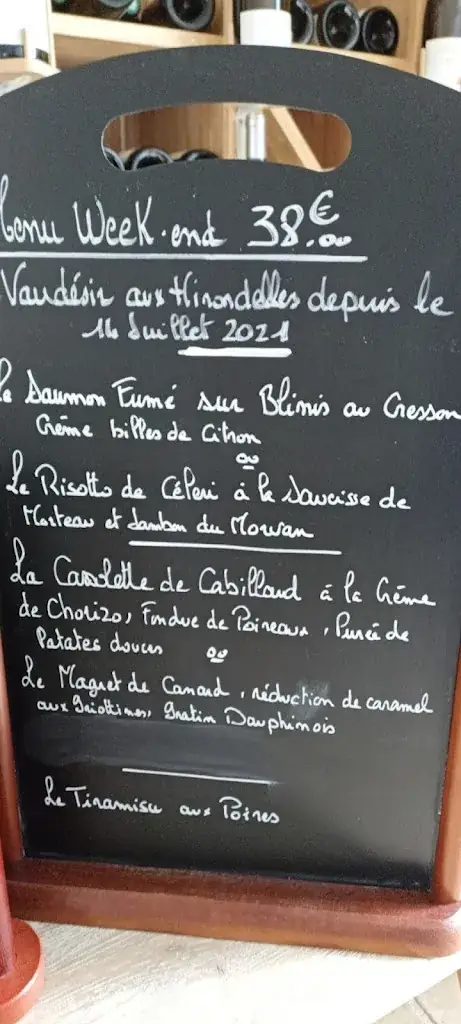 Menu Week-end 38.€00
Vaudésir aux Hirondelles depuis le
14 Juillet 2021
Le Saumon Fumé sur Blinis au Cresson
Crème billes de Citron
ou
Le Risotto de Céleri à la Saucisse de
Morteau et Jambon du Morvan
La Cassolette de Cabillaud à la Crème
de Chorizo, Fondue de Poireaux, Purée de
Patates douces
ou
Le Magret de Canard, réduction de caramel
aux Griottines, Gratin Dauphinois
Le Tiramisu aux Poires